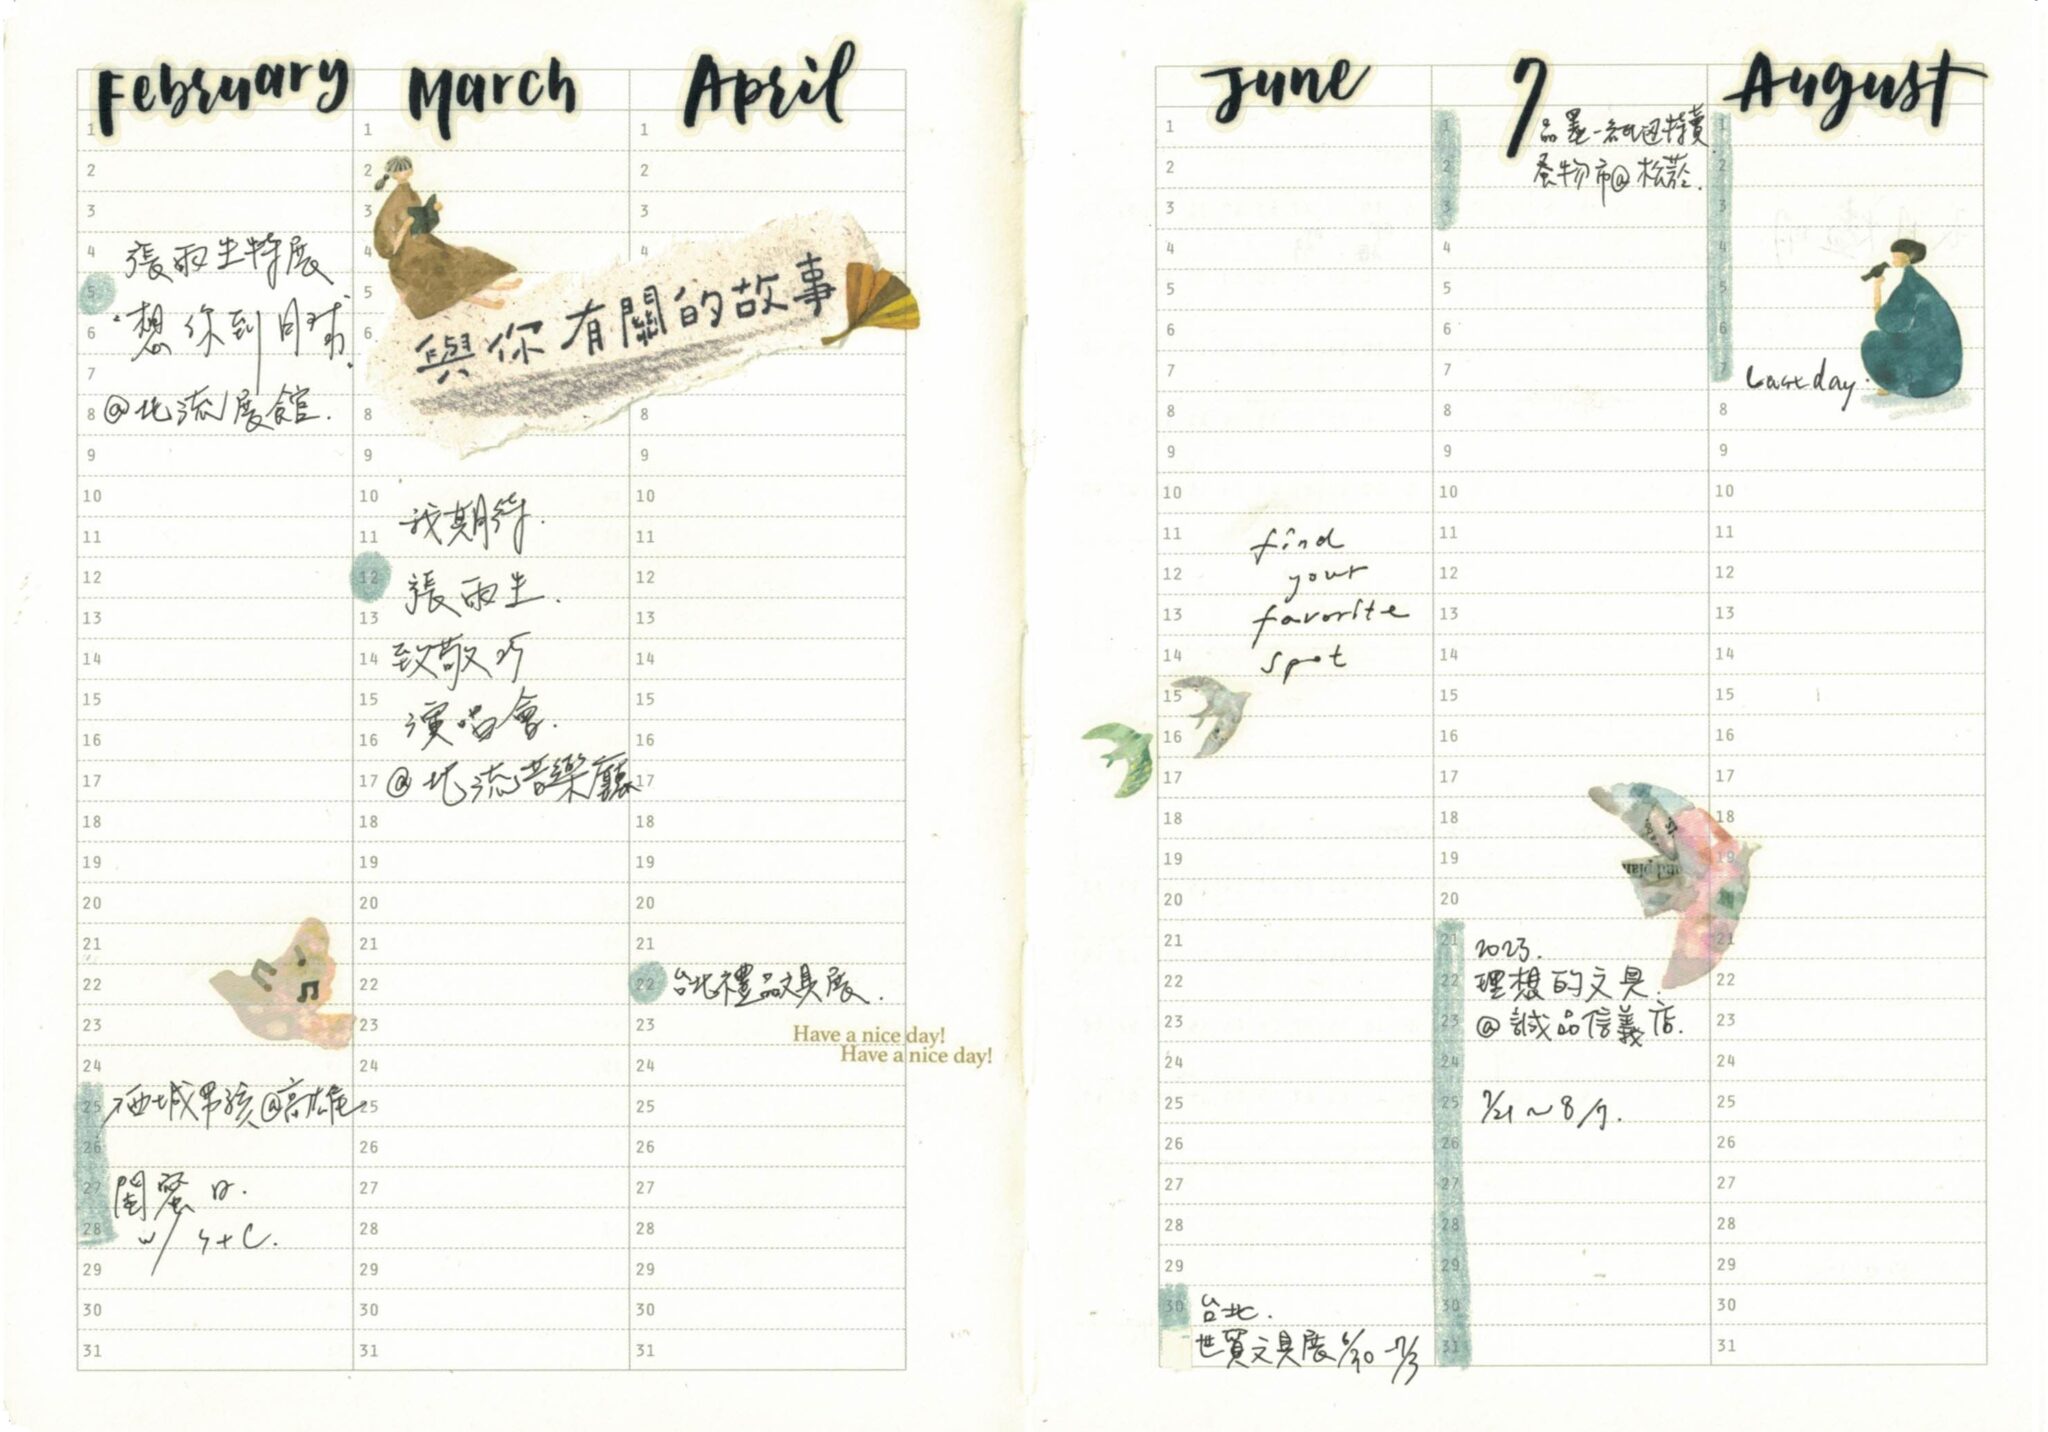 February
1
2
3
4 張雨生特展
5
6 "想你到月球"
7
8 @北流展館.
9
10
11
12
13
14
15
16
17
18
19
20
21
22
23
24
25 西城男孩@高雄
26
27 閨蜜日.
28 w/ Y+C.
29
30
31
March
1
2
3
4
5
6
與你有關的故事
7
8
9
10
我期待.
11
12 張雨生.
13
14 致敬
15 演唱會.
16
17 @北流音樂廳
18
19
20
21
22
23
24
25
26
27
28
29
30
31
April
1
2
3
4
8
9
10
11
12
13
14
15
16
17
18
19
20
21
22 台北禮品文具展.
23
Have a nice day!
Have a nice day!
24
25
26
27
28
29
30
31
June
1
2
3
4
5
6
7
8
9
10
11 find
12 your
13 favorite
14 spot
15
16
17
18
19
20
21
22
23
24
25
26
27
28
29
30 台北.
世貿文具展 6/30-7/3
7
1 品墨 特賣
2 蚤物市@松菸.
3
4
5
6
7
8
9
10
11
12
13
14
15
16
17
18
19
20
21 2023.
22 理想的文具.
23 @誠品信義店.
24
25 7/21~8/7.
26
27
28
29
30
31
August
1
2
3
4
5
6
7 Last day.
8
9
10
11
12
13
14
15
16
17
18
19
21
22
23
24
25
26
27
28
29
30
31